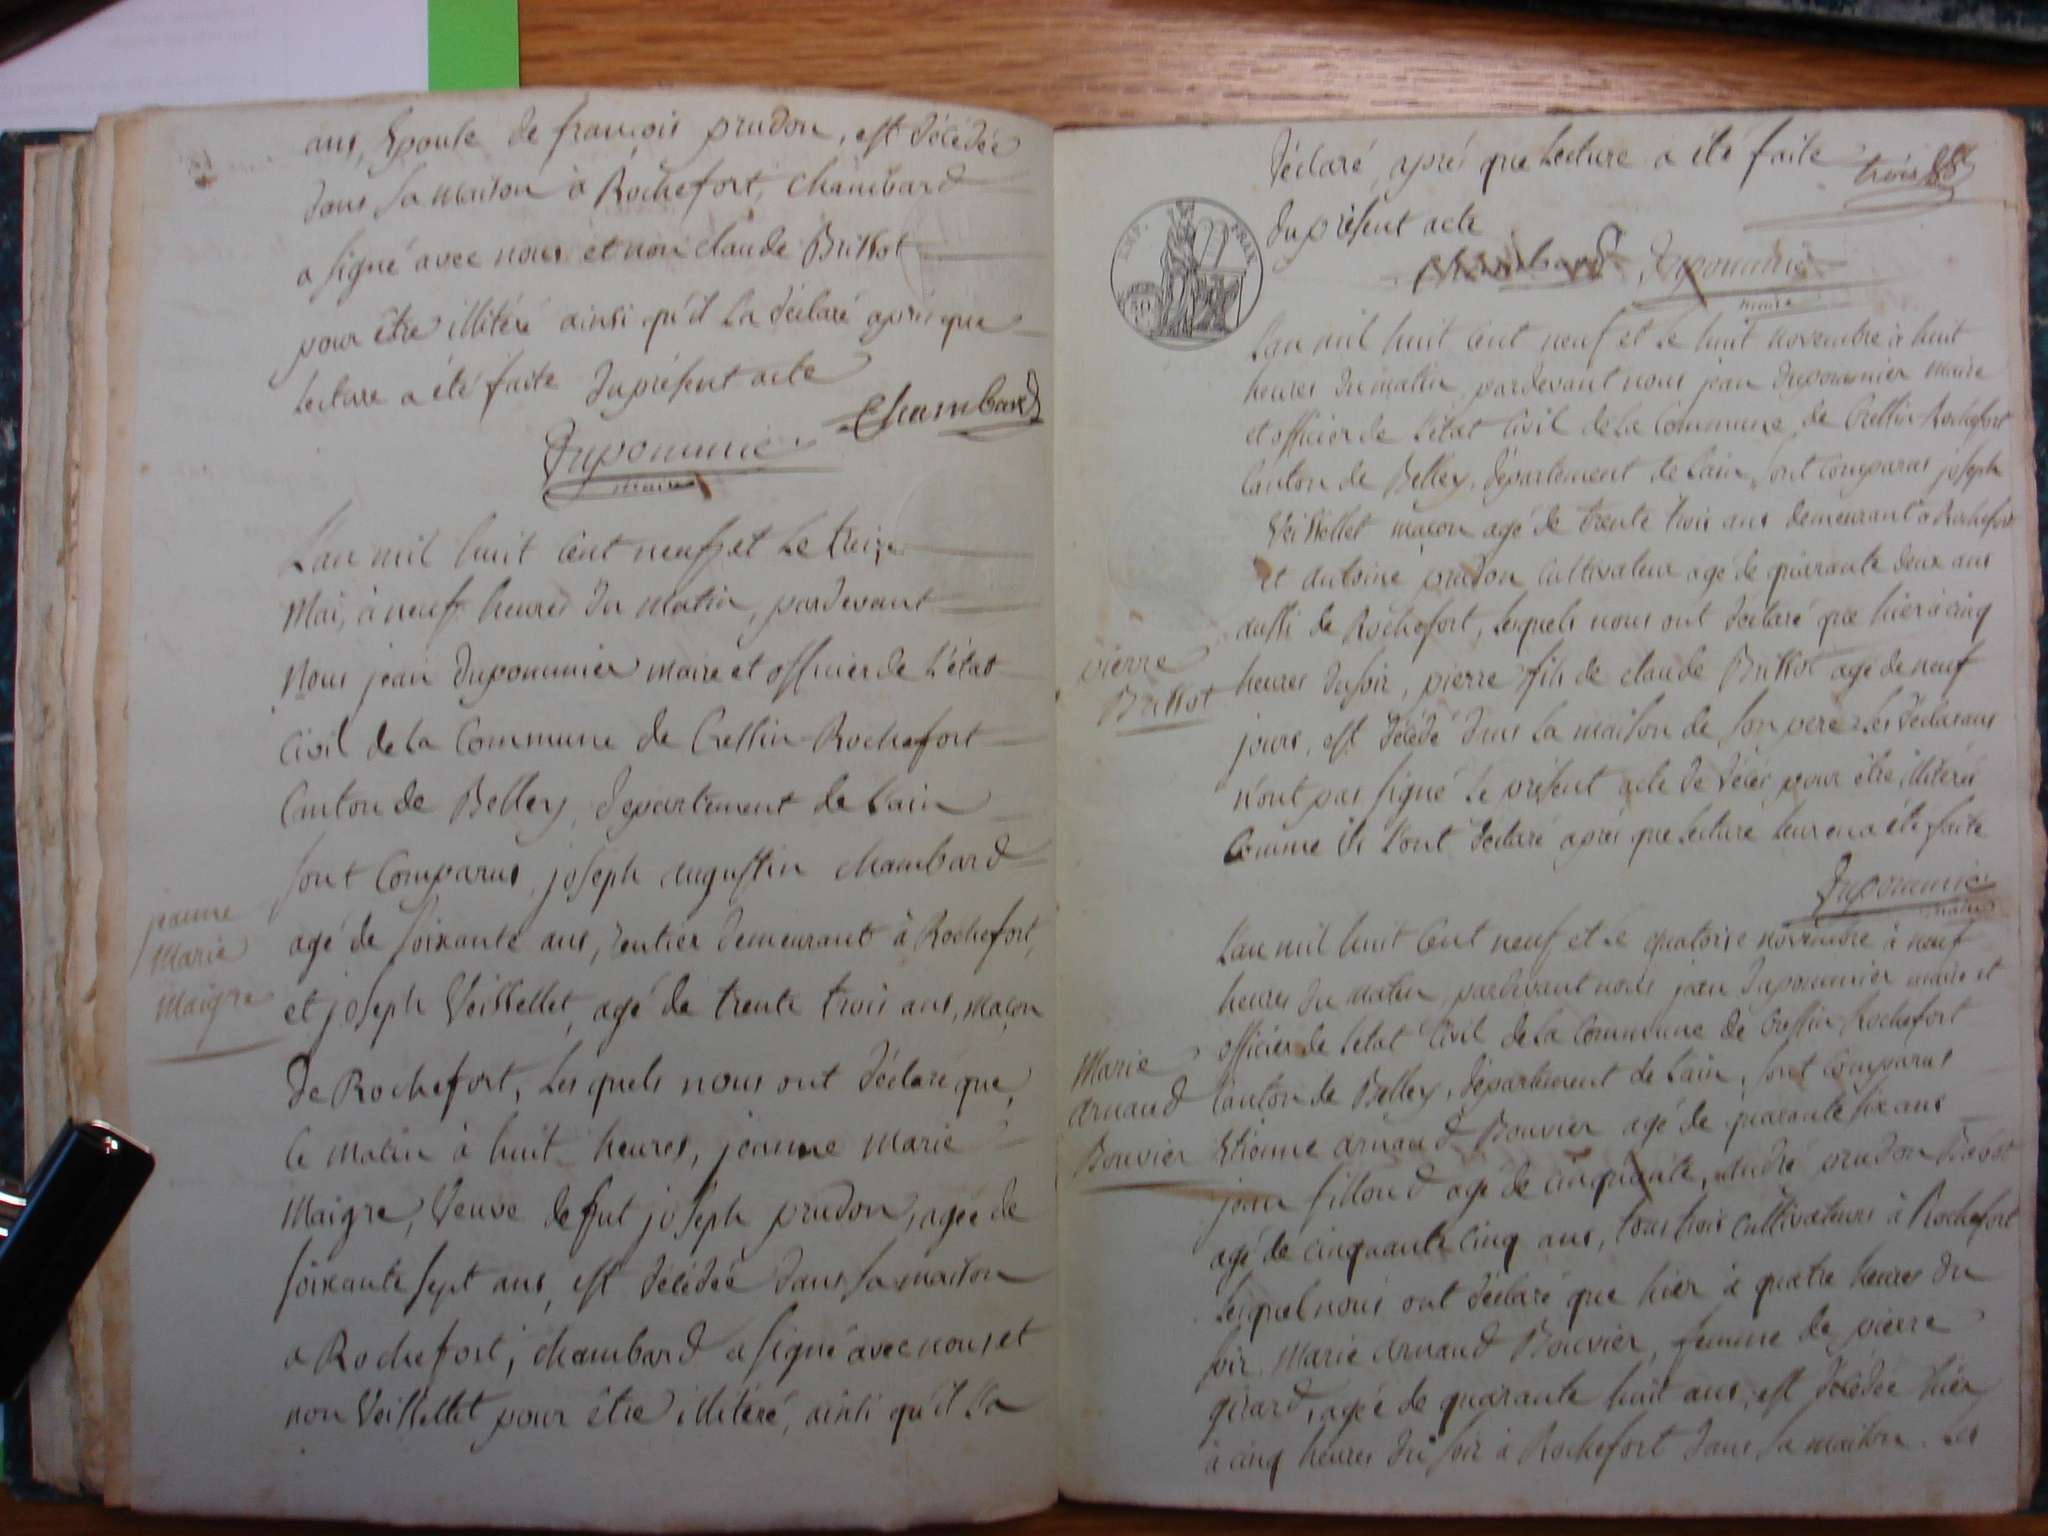 ans, Epouse de françois prudon, est décédée
dans sa maison à Rochefort, Chambard
a signé avec nous et non claude Brissot
pour être illitéré ainsi qu'il La déclaré après que
Lecture a été faite du présent acte
Chambard
Dupommier
maire
L'an mil huit cent neuf et Le treize
Mai, à neuf heures du matin, pardevant
Nous jean Dupommier maire et officier de L'état
Civil de La Commune de Cressin-Rochefort
Canton de Belley, département de L'ain
sont Comparus joseph augustin chambard
jeanne
Marie
Maigre
agé de soixante ans, rentier demeurant à Rochefort,
et joseph Veissellet, agé de trente trois ans, maçon
de Rochefort, Les quels nous ont déclaré que,
Ce matin à huit heures, jeanne marie
Maigre, Veuve defut joseph prudon, agée de
soixante sept ans, est décédée dans sa maison
a Rochefort, chambard a signé avec nous et
non Veissellet pour être illitéré, ainsi qu'il La
déclaré, après que Lecture a été faite
trois
du présent acte
EMP. FRAN.
50
Chambard Dupommier
maire
L'an mil huit cent neuf et Le huit novembre à huit
heures du matin, pardevant nous jean Dupommier maire
et officier de L'état Civil de La Commune de Cressin-Rochefort
Canton de Belley, département de L'ain, sont Comparus joseph
Veissellet maçon agé de trente trois ans demeurant à Rochefort
et antoine prudon Cultivateur agé de quarante deux ans
aussi de Rochefort, Lesquels nous ont déclaré que hier à cinq
pierre
Brissot
heures du soir, pierre fils de claude Brissot agé de neuf
jours, est décédé dans La maison de son père. Les déclarans
n'ont pas signé Le présent acte de décès pour être illitérés
Comme ils L'ont déclaré après que Lecture Leur en a été faite
Dupommier
maire
L'an mil huit Cent neuf et Le quatorze novembre à neuf
heures du matin, pardevant nous jean Dupommier maire et
officier de L'état Civil de La Commune de Cressin-Rochefort
Marie
arnaud
Bouvier
Canton de Belley, département de L'ain, sont Comparus
Etienne arnaud Bouvier agé de quarante six ans
jean fillioud agé de cinquante, andré prudon
agé de cinquante cinq ans, tous trois Cultivateurs à Rochefort
Lesquel nous ont déclaré que hier à quatre heures du
soir, Marie arnaud Bouvier, femme de pierre
girard, agée de quarante huit ans, est décédée hier
à cinq heures du soir à Rochefort dans sa maison. Les